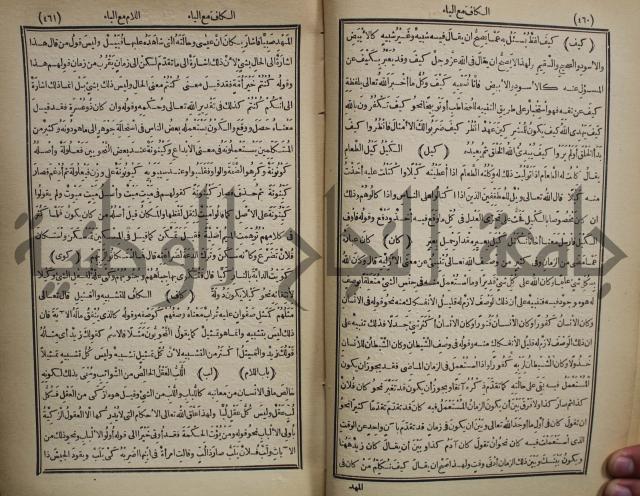 (٤٦٠) الكاف مع الياء
(كيف) كيف لفظ يسئل به عما يصح أن يقال فيه شبيه وغير شبيه كالأبيض
والأسود والصحيح والسقيم ولهذا لا يصح أن يقال في الله عز وجل كيف وقد يعبر بكيف عن
المسؤل عنه كالأسود والأبيض فإنا نسميه كيف وكل ما أخبر الله تعالى بلفظة
كيف عن نفسه فهو استخبار على طريق التنبيه للمخاطب أو توبيخا نحو كيف تكفرون بالله
كيف يهدي الله كيف يكون للمشركين عهد انظر كيف ضربوا لك الأمثال فانظروا كيف
بدأ الخلق أولم يروا كيف يبدئ الله الخلق ثم يعيده (كيل) الكيل كيل الطعام
يقال كلت له الطعام إذا توليت ذلك له وكلته الطعام إذا أعطيته كيلا واكتلت عليه أخذت
منه كيلا قال الله تعالى ويل للمطففين الذين إذا اكتالوا على الناس وإذا كالوهم وذلك
إن كان مخصوصا بالكيل فحث على تحري العدل في كل ما وقع فيه أخذ ودفع وقوله فأوف لنا
الكيل فأرسل معنا أخانا نكتل كيل بعير مقدار حمل بعير (كان) كان عبارة
عما مضى من الزمان وفي كثير من وصف الله تعالى تنبئ عن معنى الأزلية قال وكان الله
بكل شيء عليما وكان الله على كل شيء قديرا وما استعمل منه في جنس الشيء متعلقا بوصف
له هو موجود فيه فتنبيه على أن ذلك الوصف لازم له قليل الانفكاك منه نحو قوله في الإنسان
وكان الإنسان كفورا وكان الإنسان قتورا وكان الإنسان أكثر شيء جدلا فذلك تنبيه على
أن ذلك الوصف لازم له قليل الانفكاك منه وقوله في وصف الشيطان وكان الشيطان للإنسان
خذولا وكان الشيطان لربه كفورا وإذا استعمل في الزمان الماضي فقد يجوز أن يكون
المستعمل فيه بقي على حالته كما تقدم ذكره آنفا ويجوز أن يكون قد تغير نحو كان فلان
كذا ثم صار كذا ولا فرق بين أن يكون الزمان المستعمل فيه كان قد تقدم تقدما كثيرا نحو
أن تقول كان في أول ما أوجد الله تعالى وبين أن يكون في زمان قد تقدم بآن واحد عن الوقت
الذي استعملت فيه كان نحو أن تقول كان آدم كذا وبين أن يقال كان زيد ههنا
ويكون بينك وبين ذلك الزمان أدنى وقت ولهذا صح أن يقال كيف نكلم من كان في
المهد
الكاف مع الياء اللام مع الباء (٤٦١)
المهد صبيا فأشار بكان أن عيسى وحالته التي شاهده عليها قبيل وليس قول من قال هذا
إشارة إلى الحال بشيء لأن ذلك إشارة إلى ما تقدم لكن إلى زمان يقرب من زمان قولهم هذا
وقوله كنتم خير أمة فقد قيل معنى كنتم معنى الحال وليس ذلك بشيء بل إنما ذلك إشارة
إلى أنكم كنتم كذلك في تقدير الله تعالى وحكمه وقوله وإن كان ذو عسرة فقد قيل
معناه حصل ووقع والكون يستعمله بعض الناس في استحالة جوهر إلى ما هو دونه وكثير من
المتكلمين يستعملونه في معنى الإبداع وكينونة عند بعض النحويين فعلولة وأصله
كونونة وكرهوا الضمة والواو فقلبوا وعند سيبويه كيونونة على وزن فيعلولة ثم أدغم فصار
كينونة ثم حذف فصار كينونة كقولهم في ميت ميت وأصل ميت ميوت ولم يقولوا
كينونة على الأصل كما قالوا ميت لثقل لفظها والمكان قيل أصله من كان يكون فلما كثر
في كلامهم توهمت الميم أصلية فقيل تمكن كما قيل في المسكين تمسكن واستكان
فلان تضرع وكأنه سكن وترك الدعة لضراعته قال فما استكانوا لربهم (كوى)
كويت الدابة بالنار كيا قال فتكوى بها جباههم وجنوبهم وكي علة لفعل الشيء وكيلا
لانتفائه نحو كيلا يكون دولة (كاف) الكاف للتشبيه والتمثيل قال تعالى
مثلهم كمثل صفوان عليه تراب معناه وصفهم كوصفه وقوله كالذي ينفق ماله الآية فإن
ذلك ليس بتشبيه وإنما هو تمثيل كما يقول النحويون مثلا فالاسم كقولك زيد أي مثاله
قولك زيد والتمثيل أكثر من التشبيه لأن كل تمثيل تشبيه وليس كل تشبيه تمثيلا
(باب اللام) (لب) اللب العقل الخالص من الشوائب وسمي بذلك لكونه
خالص ما في الإنسان من معانيه كاللباب واللب من الشيء وقيل هو ما زكى من العقل فكل
لب عقل وليس كل عقل لبا ولهذا علق الله تعالى الأحكام التي لا يدركها إلا العقول الزكية
بأولي الألباب نحو قوله ومن يؤت الحكمة فقد أوتي خيرا إلى قوله أولوا الألباب ونحو ذلك من
الآيات ولب فلان يلب صار ذا لب وقالت امرأة في ابنها اضربه كي يلب ويقود الجيش ذا
جامعة النجاح الوطنية